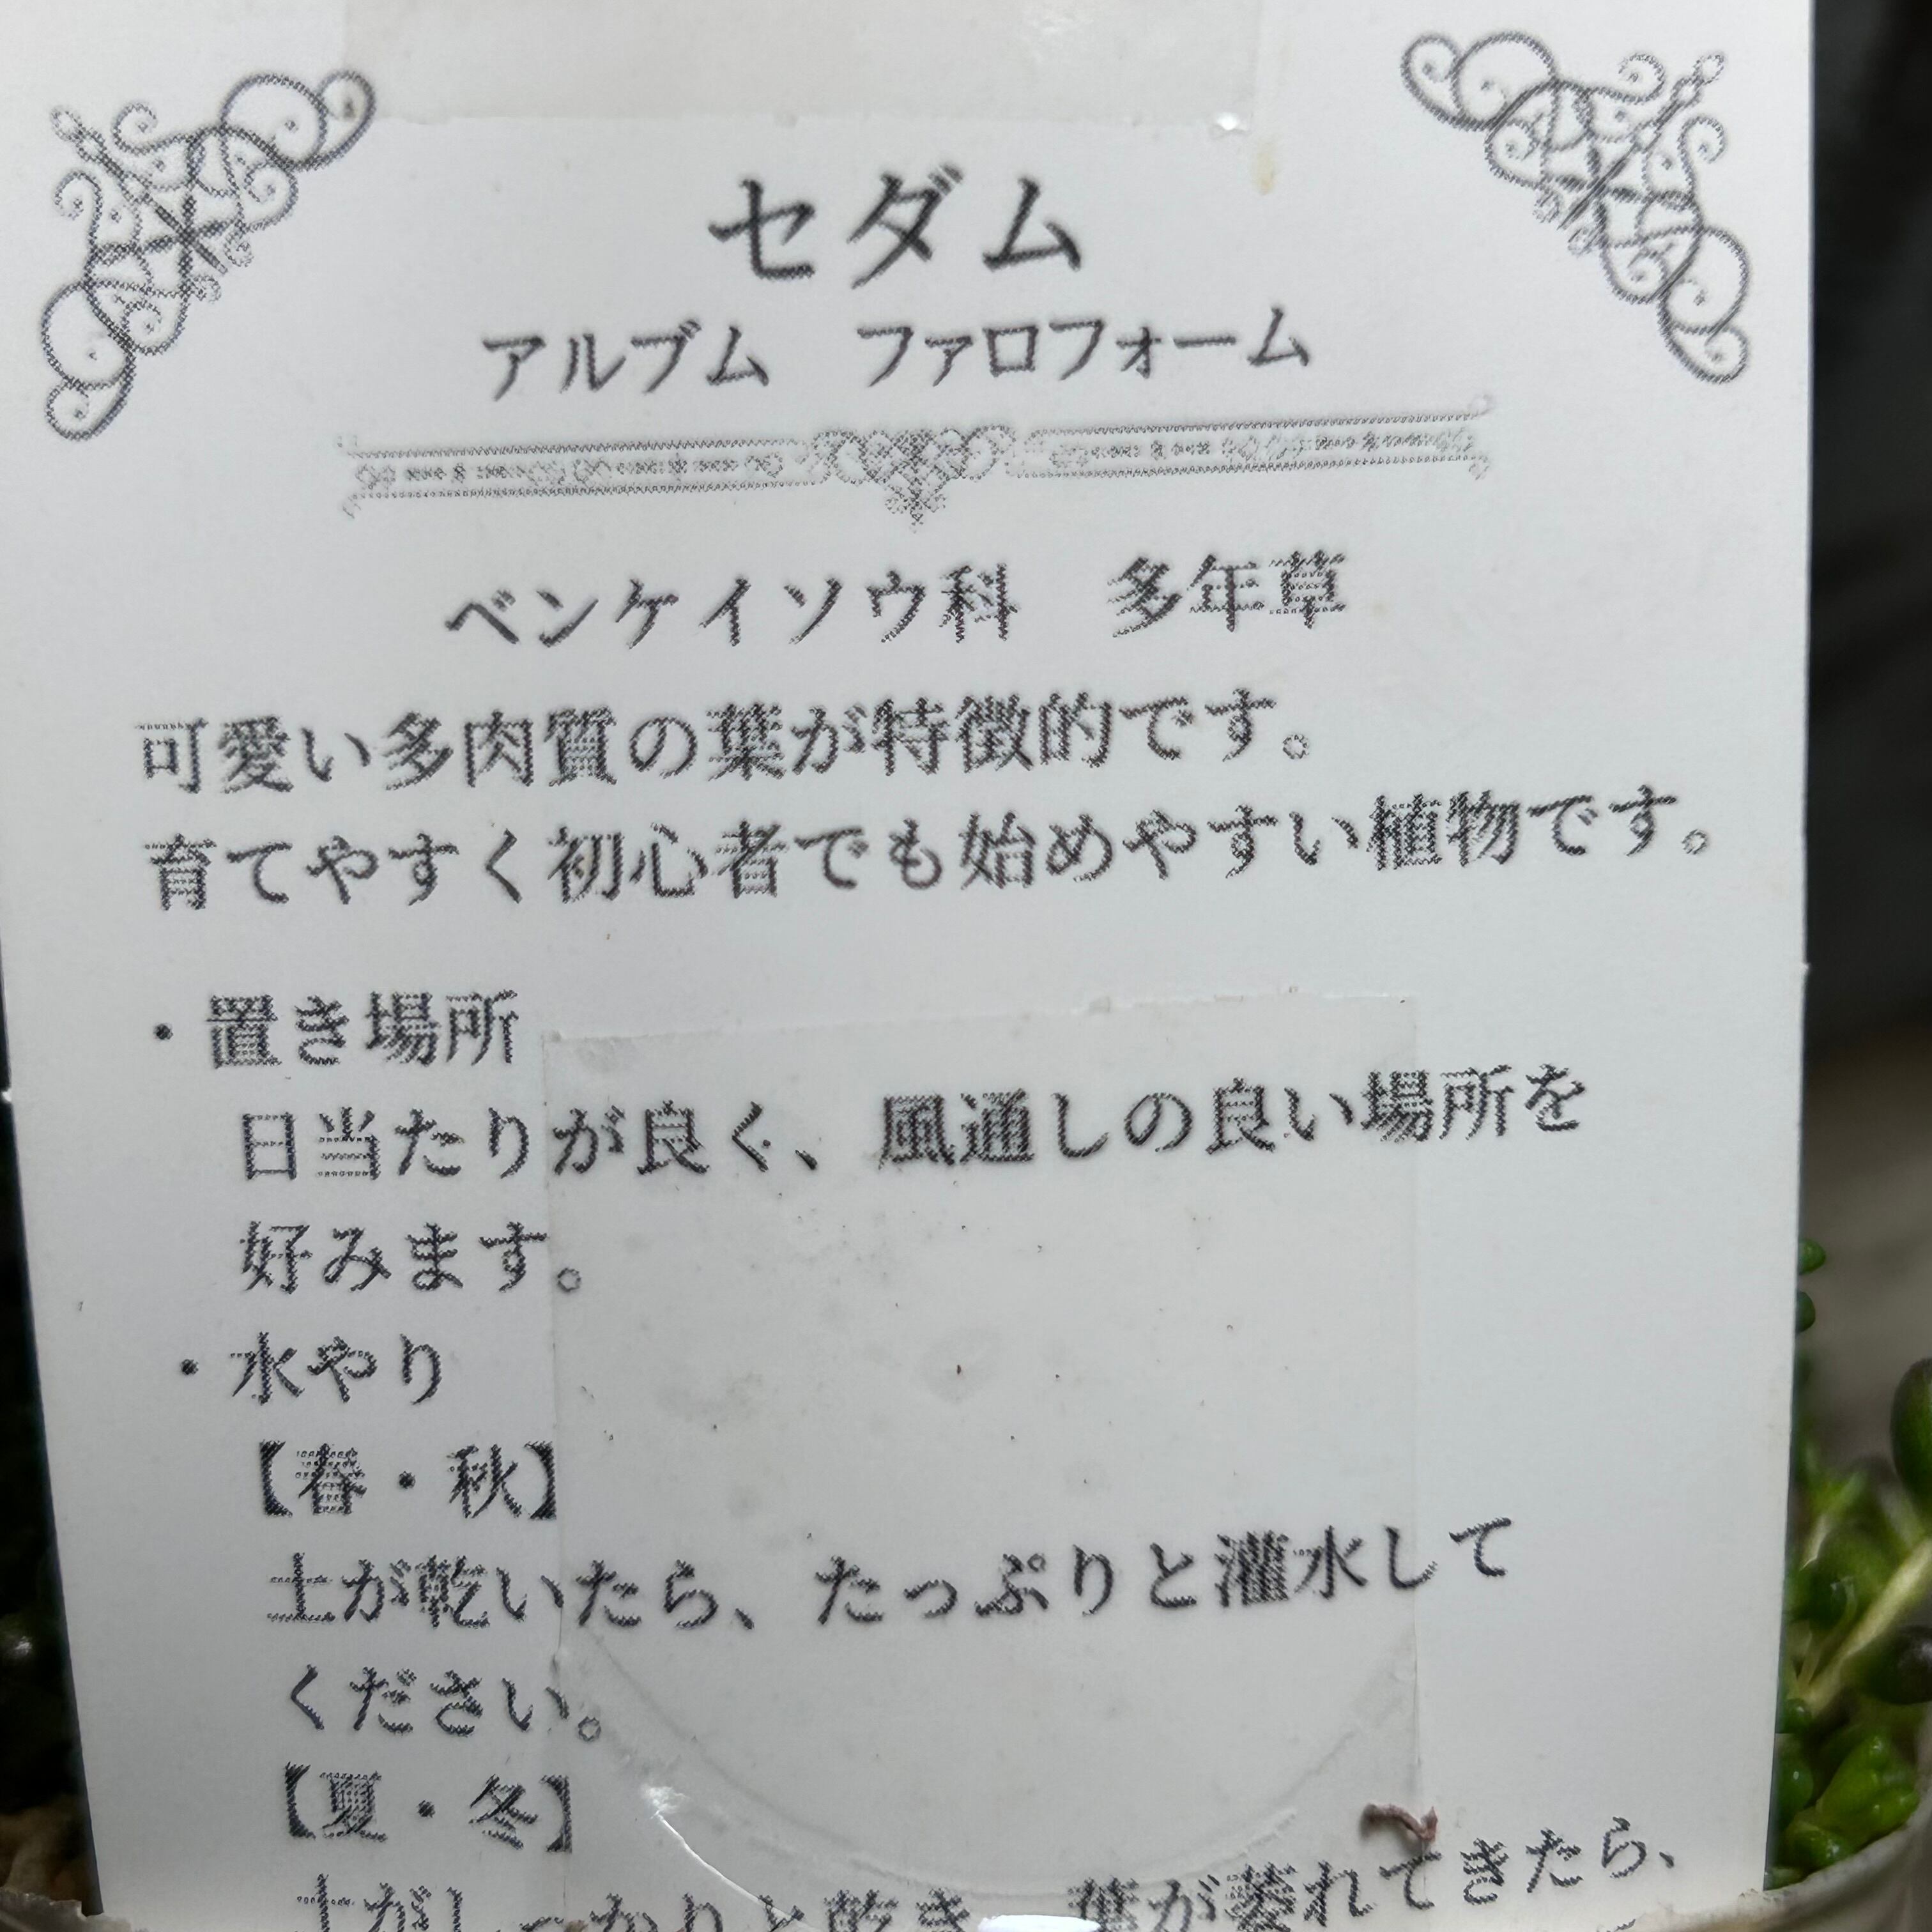 セダム
アルブム　ファロフォーム
ベンケイソウ科　多年草
可愛い多肉質の葉が特徴的です。
育てやすく初心者でも始めやすい植物です。
・置き場所
日当たりが良く、風通しの良い場所を
好みます。
・水やり
【春・秋】
土が乾いたら、たっぷりと灌水して
ください。
【夏・冬】
土がしっかりと乾き、葉が萎れてきたら、